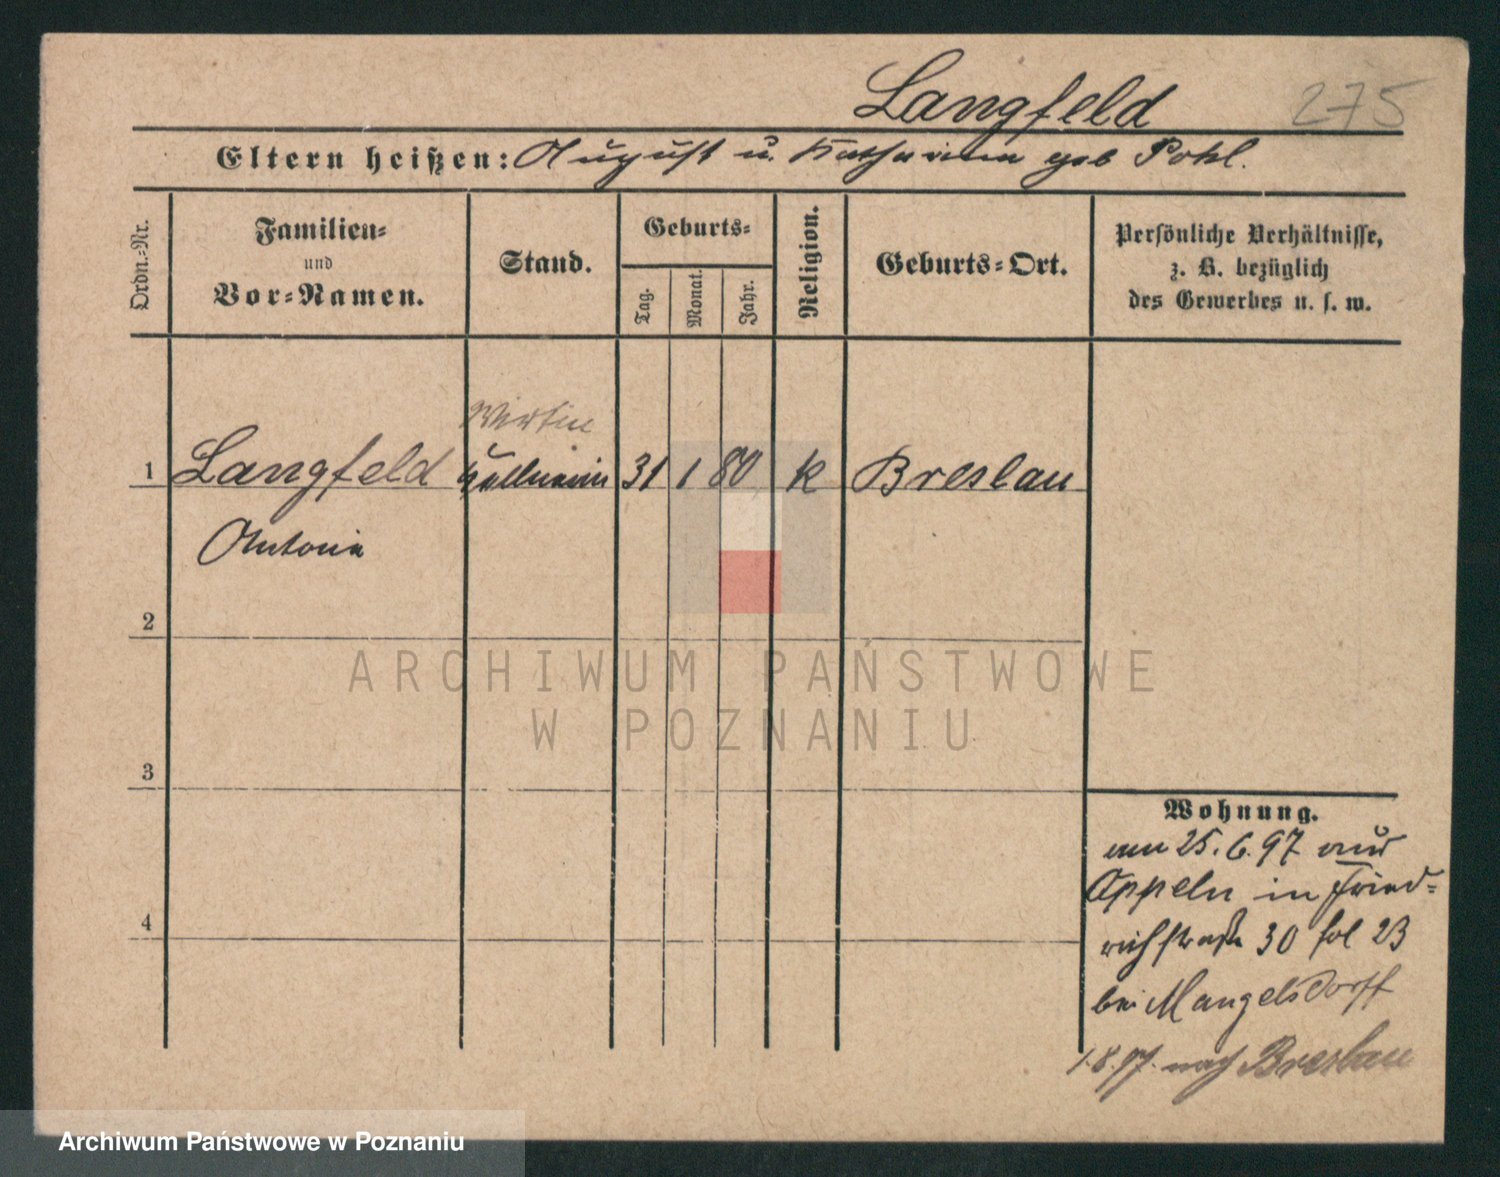 Langfeld
275
Eltern heißen: August u. Katharina geb Pohl.
Ordn.-Nr.
Familien-
und
Vor-Namen.
Stand.
Geburts-
Tag.
Monat.
Jahr.
Religion.
Geburts-Ort.
Persönliche Verhältnisse,
z. B. bezüglich
des Gewerbes u. s. w.
Wirtin
1 Langfeld Kellnerin 31 1 80 k Breslau
Antonie
2
ARCHIWUM PAŃSTWOWE
W POZNANIU
3
Wohnung.
am 25.6.97 aus
Oppeln in Fried-
4
richstraße 30 fol 23
bei Mangelsdorff
1.8.97. nach Breslau
Archiwum Państwowe w Poznaniu